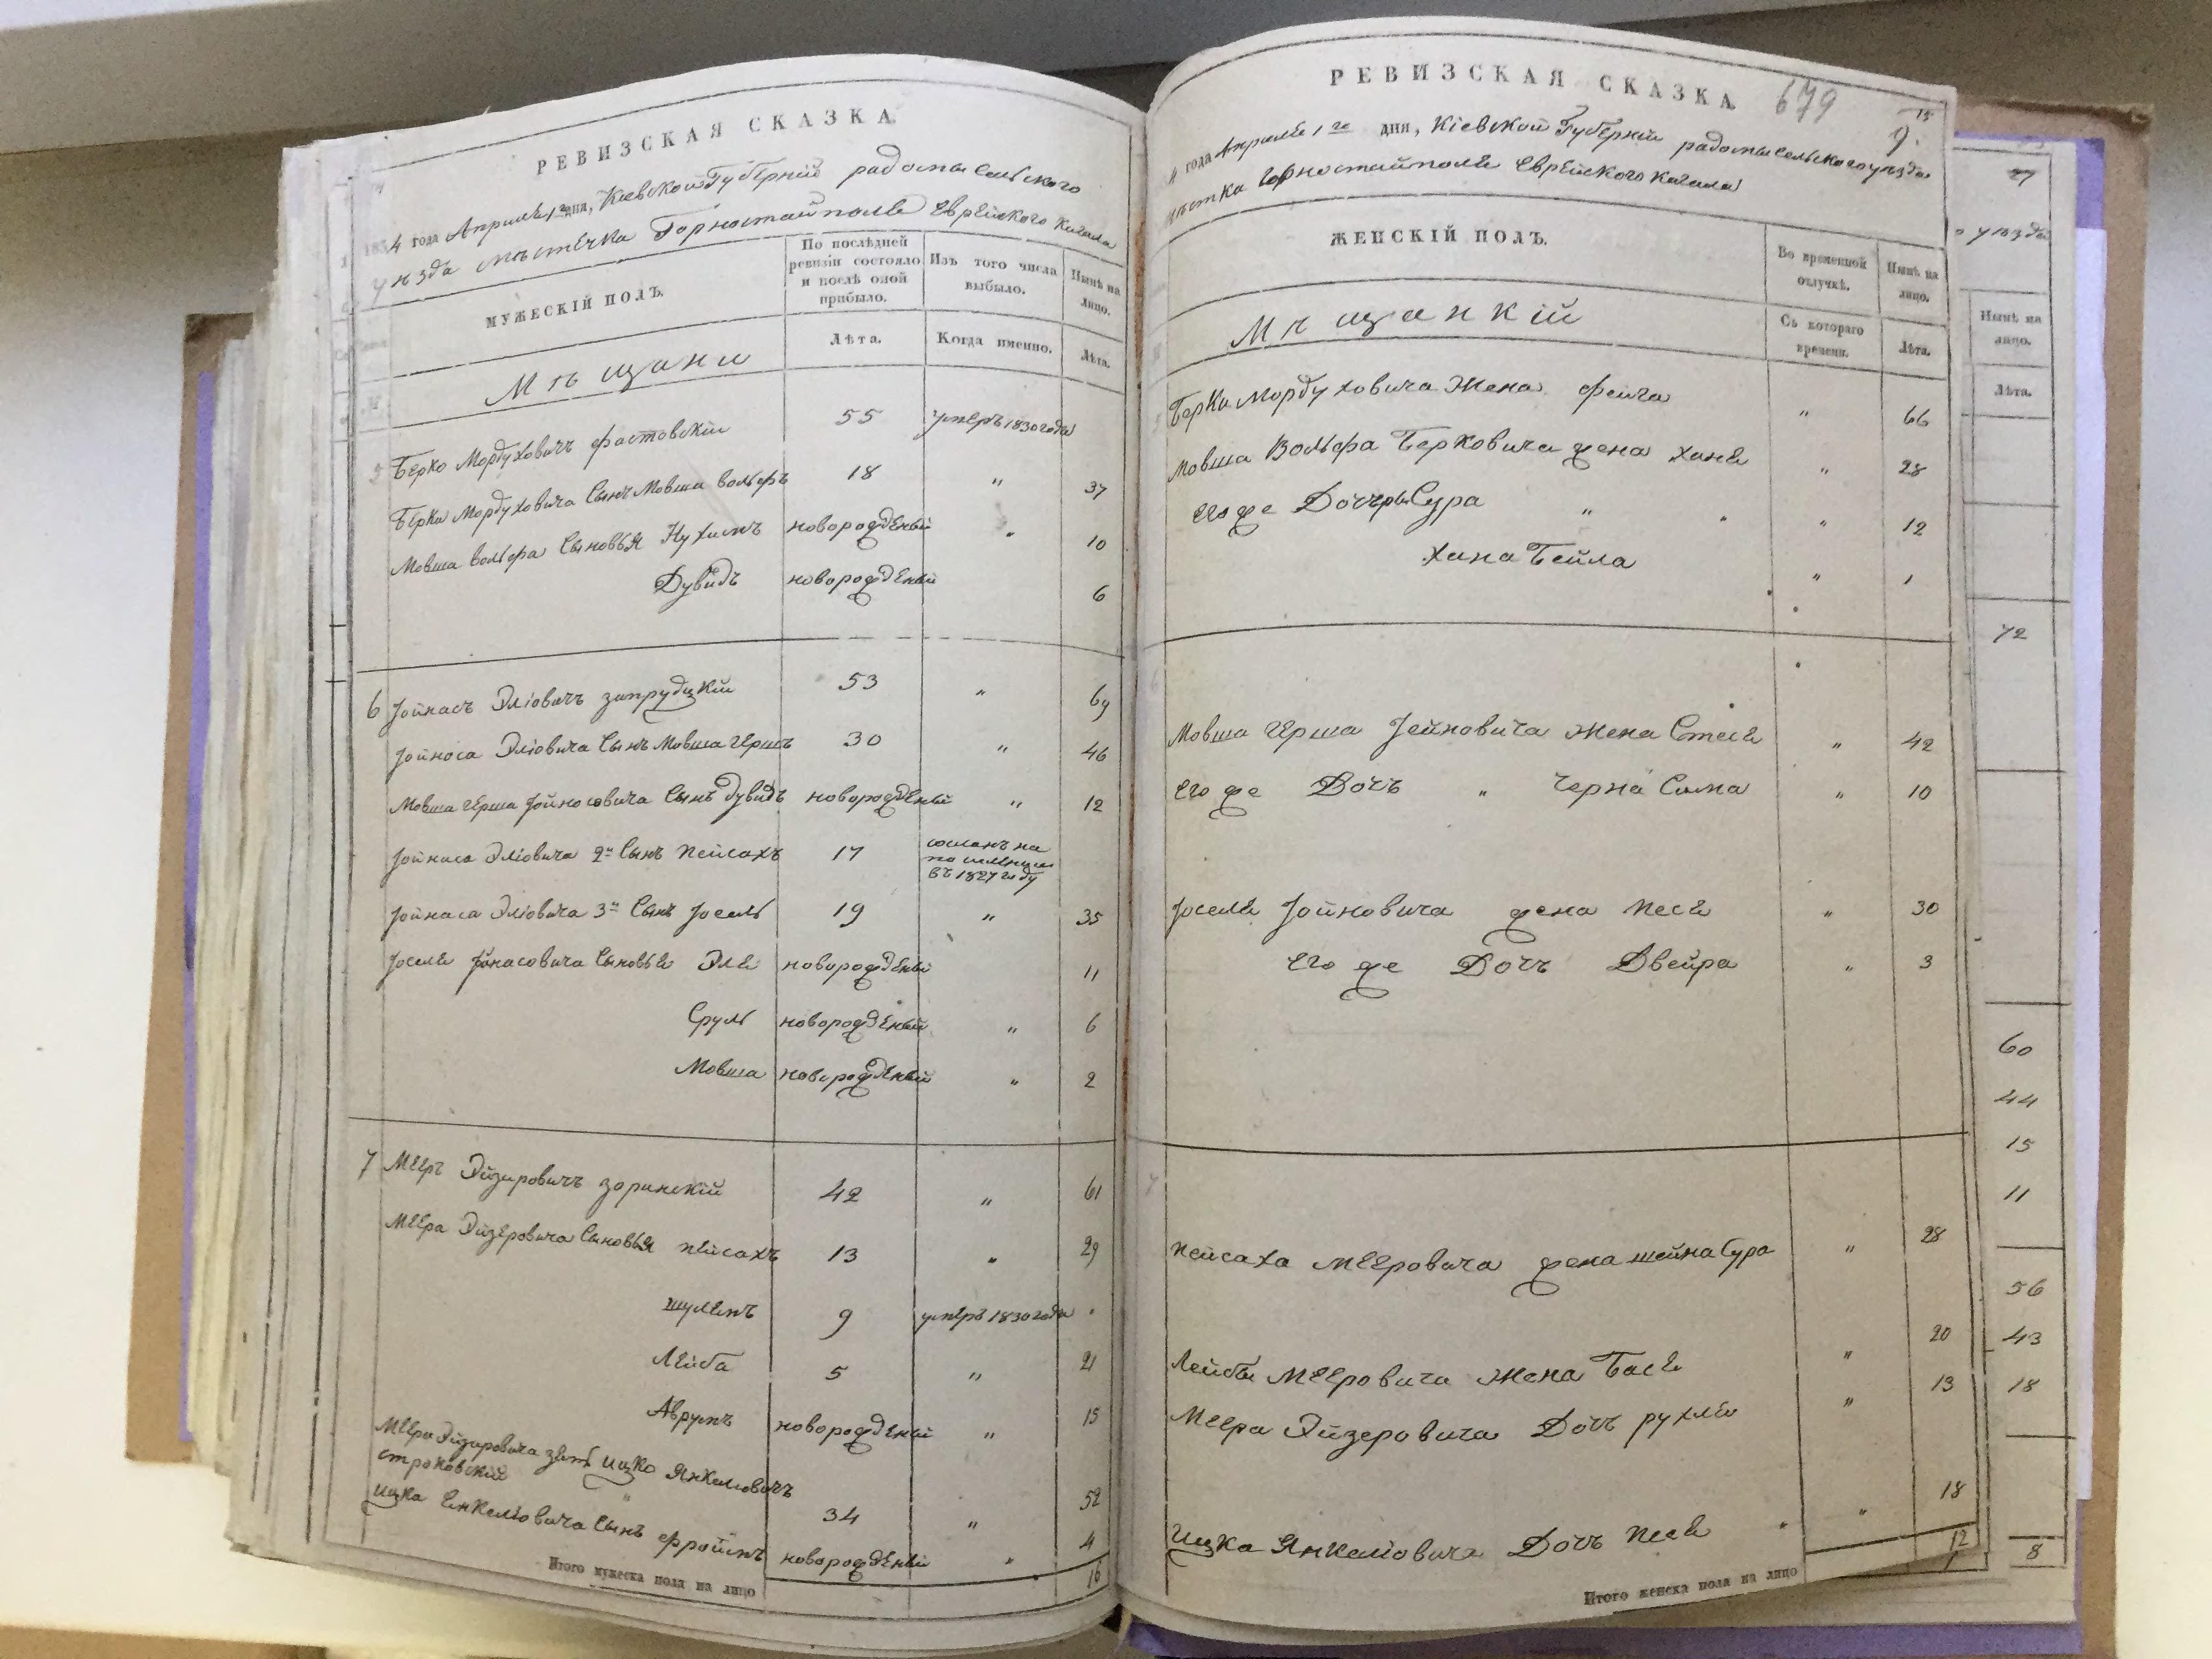 РЕВИЗСКАЯ СКАЗКА
1834 года Апреля 1го дня, Кіевской Губерніи радомысельского
уѣзда мѣстечка Горностайполя Еврейского Кагала
МУЖЕСКІЙ ПОЛЪ.
По послѣдней ревизіи состояло и послѣ оной прибыло.
Изъ того числа выбыло.
Нынѣ на лицо.
Лѣта.
Когда именно.
Лѣта.
Мѣщани
Берко Мордуховичъ фастовскій 55 умеръ 1830 года
Берка Мордуховича Сынъ Мовша вольфъ 18 " 37
Мовша вольфа Сыновья Нухимъ новорожденый " 10
Дувидъ новорожденый 6
6 Іойнасъ Эліовичъ запрудцкій 53 " 69
Іойноса Эліовича Сынъ Мовша Гершъ 30 " 46
Мовша Герша Іойносовича Сынъ Дувидъ новорожденый " 12
Іойнаса Эліовича 2й Сынъ Пейсахъ 17 сосланъ на поселеніе въ 1827 году
Іойнаса Эліовича 3й Сынъ Іосель 19 " 35
Іоселя Іойнасовича Сыновье Эле новорожденый 11
Сруль новорожденый " 6
Мовша новорожденый " 2
7 Мееръ Эйзеровичъ заринскій 42 " 61
Меера Эйзеровича Сыновья пейсахъ 13 " 29
шулемъ 9 умеръ 1830 года "
Лейба 5 " 21
Аврумъ новорожденый " 15
Меера Эйзеровича зять ицко Янкеліовичъ
строковскій 34 " 52
ицка Енкеліовича Сынъ фроимъ новорожденый " 4
Итого мужеска пола на лицо 16
РЕВИЗСКАЯ СКАЗКА
679
9.
4 года Апреля 1го дня, Кіевской Губерніи радомысельского уѣзда
мѣстка горностайполя Еврейского Кагала
ЖЕНСКІЙ ПОЛЪ.
Во временной отлучкѣ.
Нынѣ на лицо.
Съ котораго времени.
Лѣта.
Мѣщанкій
Берка Мордуховича Жена фейга " 66
Мовша Вольфа Берковича жена Хане " 28
его же Дочеры Сура " " " 12
Хана Бейла " 1
Мовша Герша Іойновича Жена Стесе " 42
Его же Дочъ " Черна Сима " 10
Іоселя Іойновича жена песе " 30
Его же Дочъ Двейра " 3
Пейсаха Мееровича жена шейна Сура " 28
Лейбы Мееровича Жена Басе " 20
Меера Эйзеровича Дочъ рухле " 13
Ицка Янкеліовича Дочъ Песе " 18
Итого женска пола на лицо 12
уѣзда
Нынѣ на лицо.
Лѣта.
72
60
44
15
11
56
43
18
8